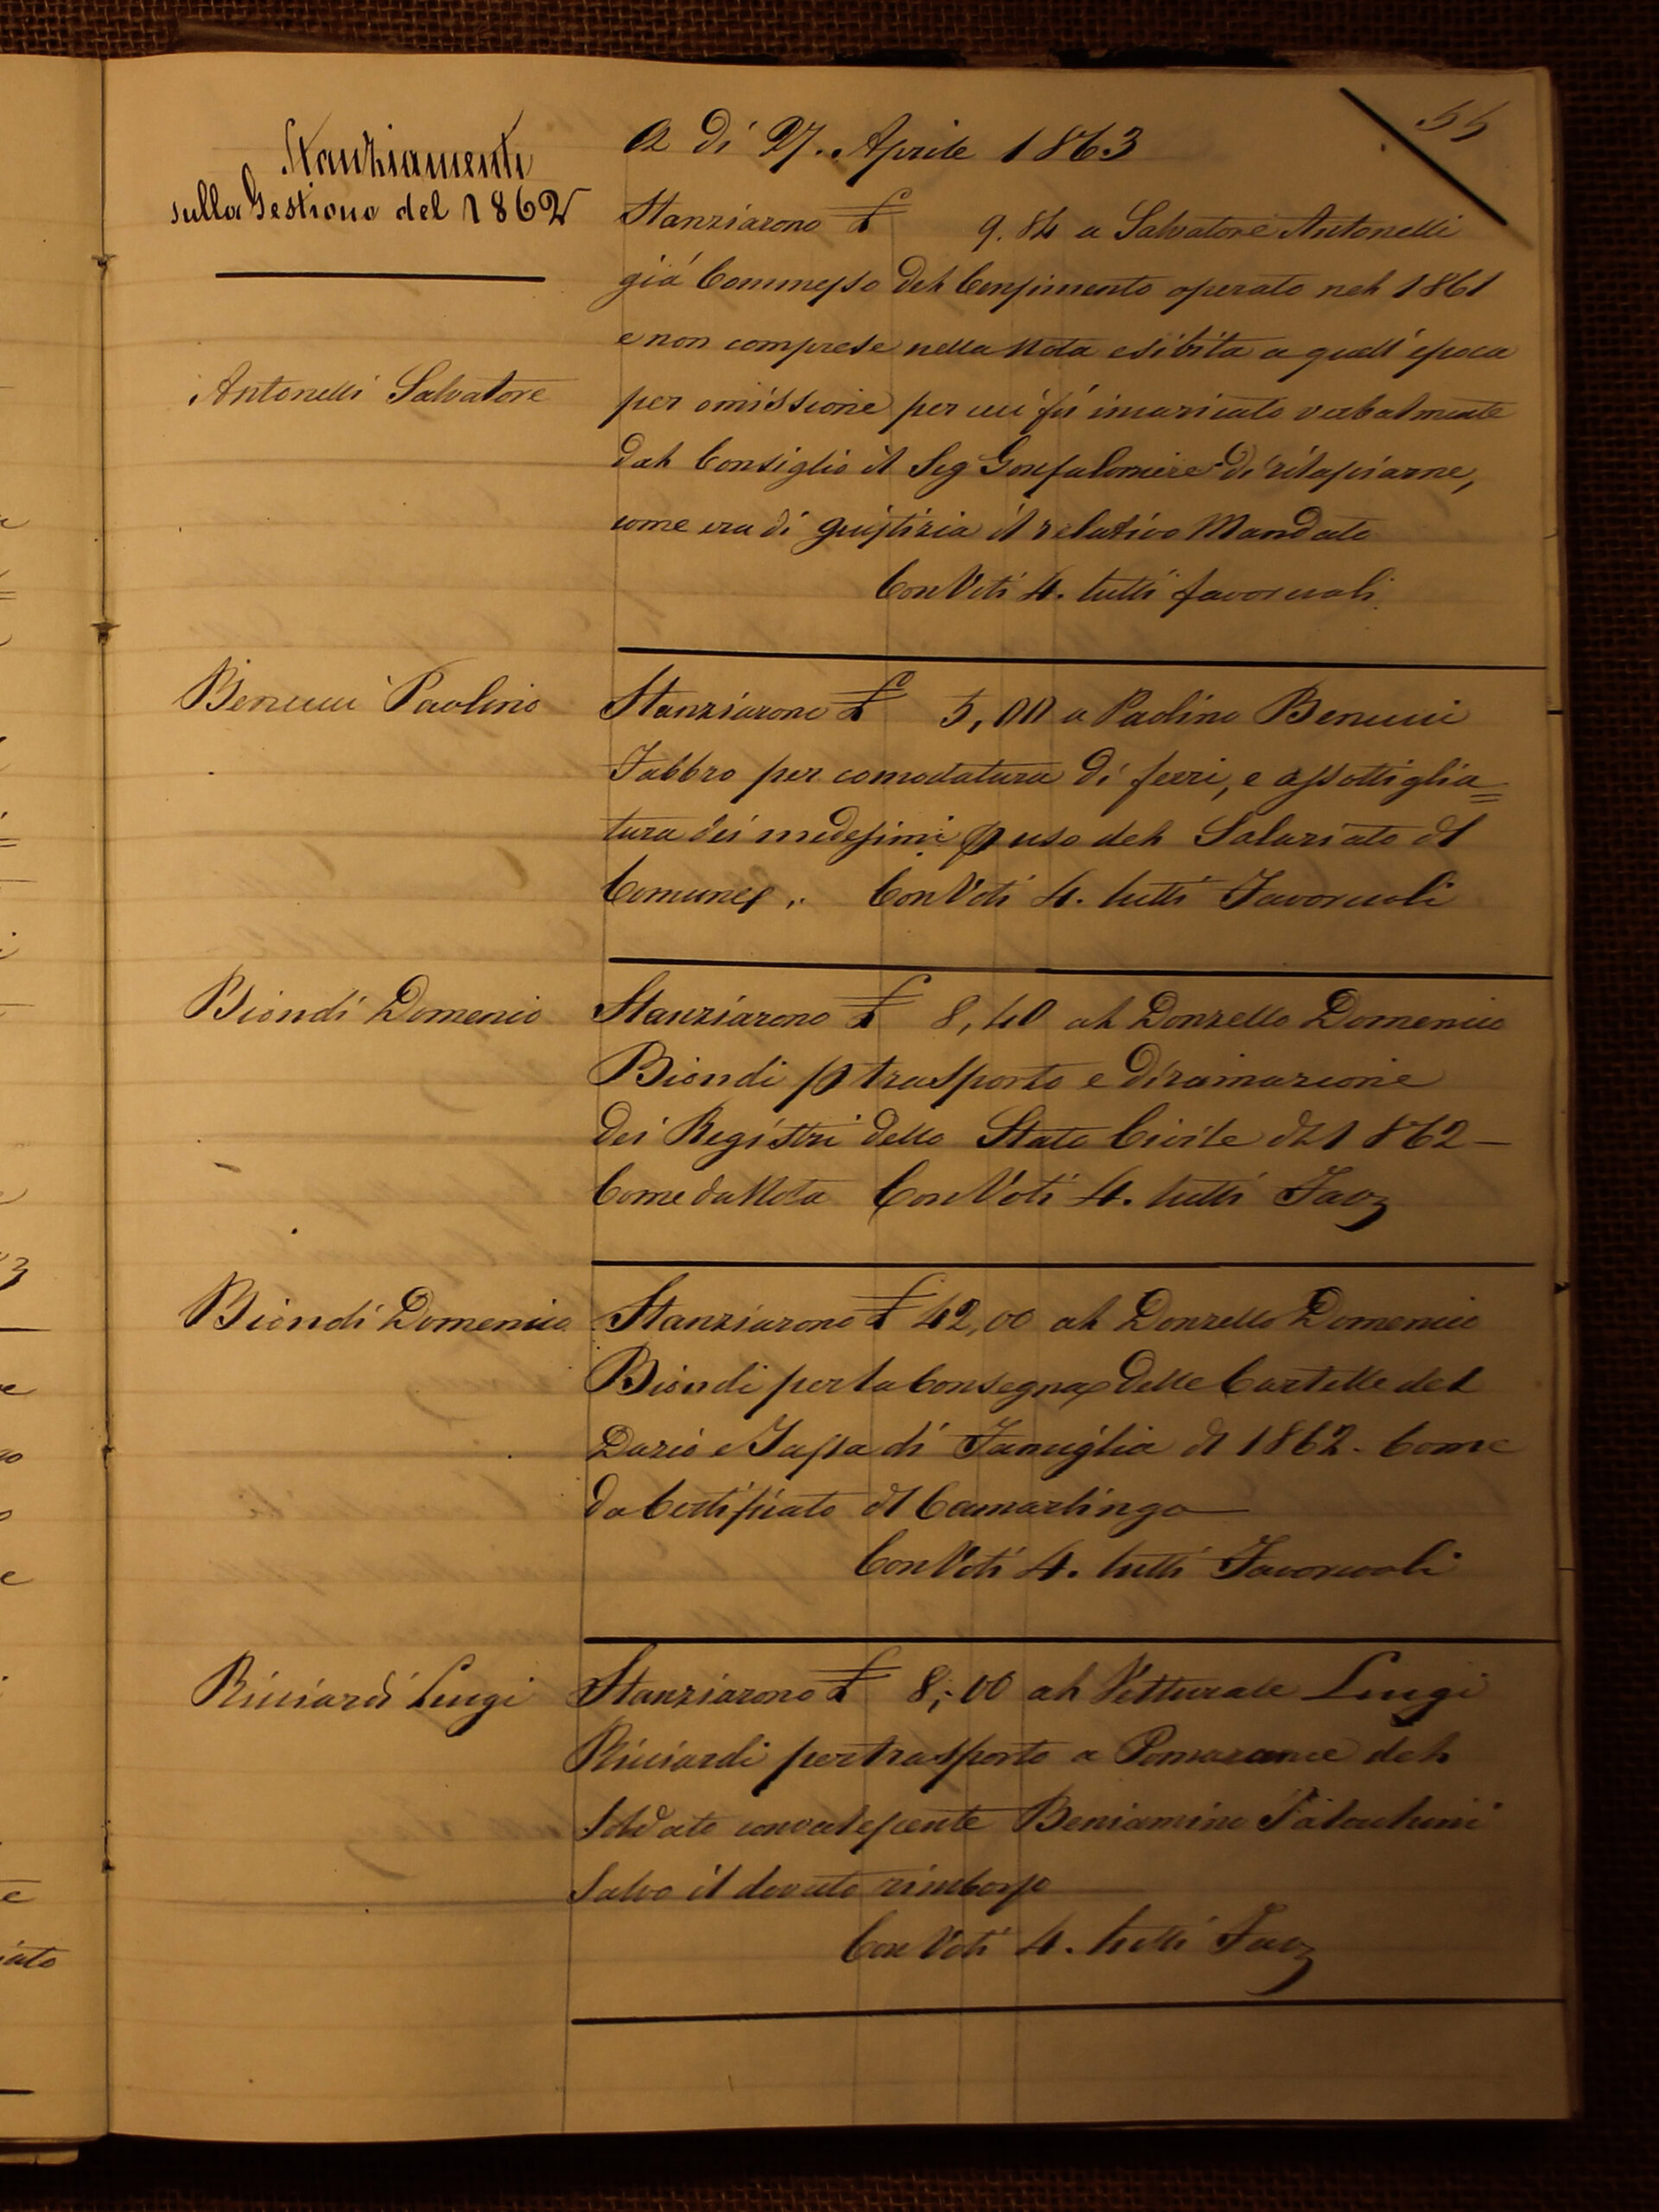 55
Stanziamenti
sulla Gestione del 1862
A dì 27. Aprile 1863
Stanziarono £ 9.84 a Salvatore Antonelli
già Commesso del Censimento operato nel 1861
e non comprese nella Nota esibita a quell'epoca
Antonelli Salvatore
per omissione per cui fù incaricato verbalmente
dal Consiglio il Sig Gonfaloniere di rilasciarne,
come era di giustizia il relativo Mandato
Con Voti 4. tutti favorevoli
Benucci Paolino
Stanziarono £ 5,00 a Paolino Benucci
Fabbro per comodatura di ferri, e assottiglia=
tura dei medesimi p uso del Salariato dl
Comune. Con Voti 4. tutti Favorevoli
Biondi Domenico
Stanziarono £ 8,40 al Donzello Domenico
Biondi p trasporto e diramazione
dei Registri dello Stato Civile dl 1862 —
Come da Nota Con Voti 4. tutti Fav
Biondi Domenico
Stanziarono £ 42,00 al Donzello Domenico
Biondi per la Consegna delle Cartelle del
Dazio e Tassa di Famiglia dl 1862. Come
da Certificato dl Camarlingo
Con Voti 4. tutti Favorevoli
Ricciardi Luigi
Stanziarono £ 8,00 al Vetturale Luigi
Ricciardi per trasporto a Pomarance del
Soldato convalescente Beniamino
Salvo il dovuto rimborso
Con Voti 4. tutti Fav